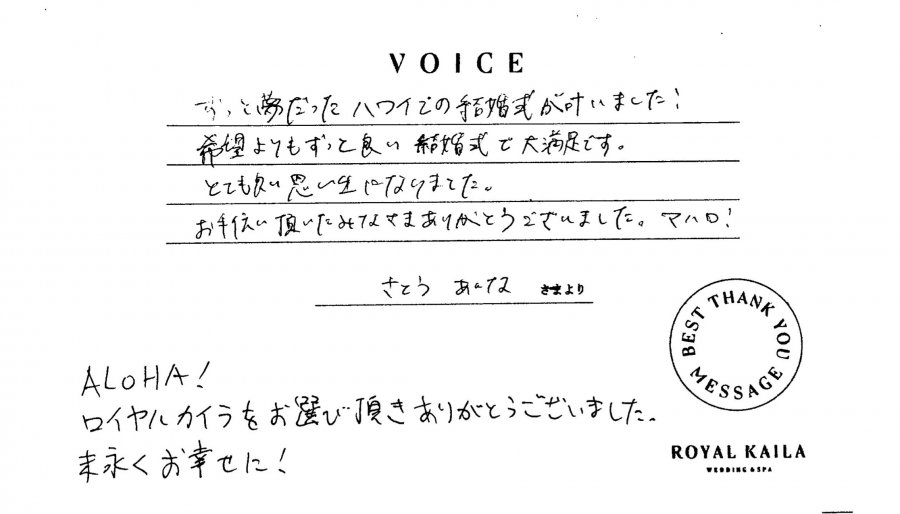 VOICE
ずっと夢だった ハワイでの結婚式が叶いました!
希望よりもずっと良い 結婚式で大満足です。
とても良い思い出になりました。
お手伝い頂いたみなさまありがとうございました。マハロ!
さとう あんな さまより
BEST THANK YOU MESSAGE
ALOHA!
ロイヤルカイラをお選び頂きありがとうございました。
末永くお幸せに!
ROYAL KAILA
WEDDING & SPA